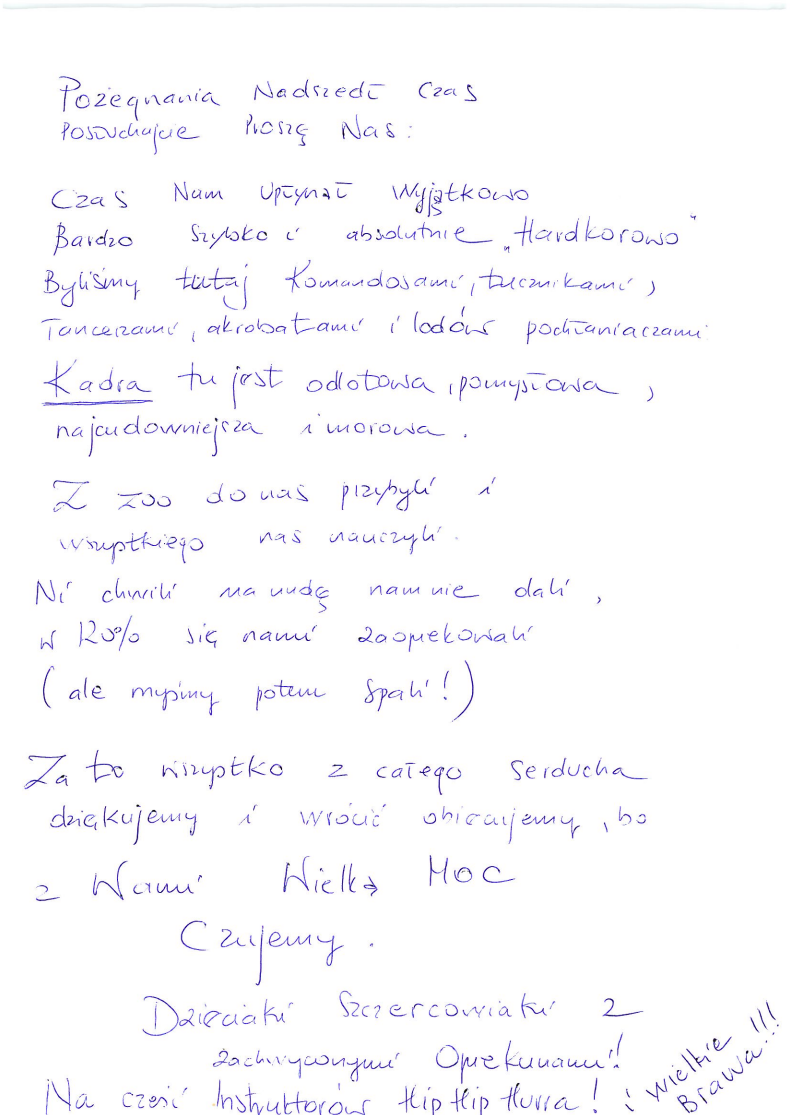 Pożegnania Nadszedł Czas
Posłuchajcie Proszę Nas:
Czas Nam Upłynął Wyjątkowo
Bardzo Szybko i absolutnie „Hardkorowo"
Byliśmy tutaj Komandosami, łucznikami,
Tancerzami, akrobatami i lodów pochłaniaczami
Kadra tu jest odlotowa, pomysłowa,
najcudowniejsza i morowa.
Z zoo do nas przybyli i
wszystkiego nas nauczyli.
Ni chwili na nudę nam nie dali,
w 120% się nami zaopiekowali
(ale myśmy potem Spali!)
Za to wszystko z całego Serducha
dziękujemy i wrócić obiecujemy, bo
z Wami Wielką MOC
Czujemy.
Dzieciaki Szczercowiaki z
zachwyconymi Opiekunami!
Na cześć Instruktorów Hip Hip Hurra! i wielkie
Brawa!!!